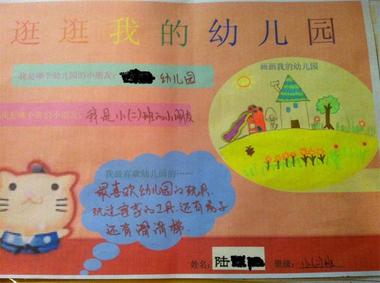 逛逛我的幼儿园
我是哪个幼儿园的小朋友: 幼儿园
画画我的幼儿园
我是小(二)班的小朋友
我最喜欢幼儿园的……
最喜欢幼儿园的玩具
还有房子
还有滑滑梯
姓名: 陆 班级: 小(二)班